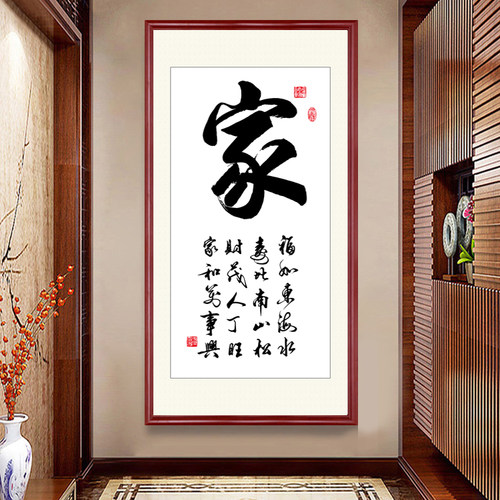 家
福如东海水
寿比南山松
财茂人丁旺
家和万事興